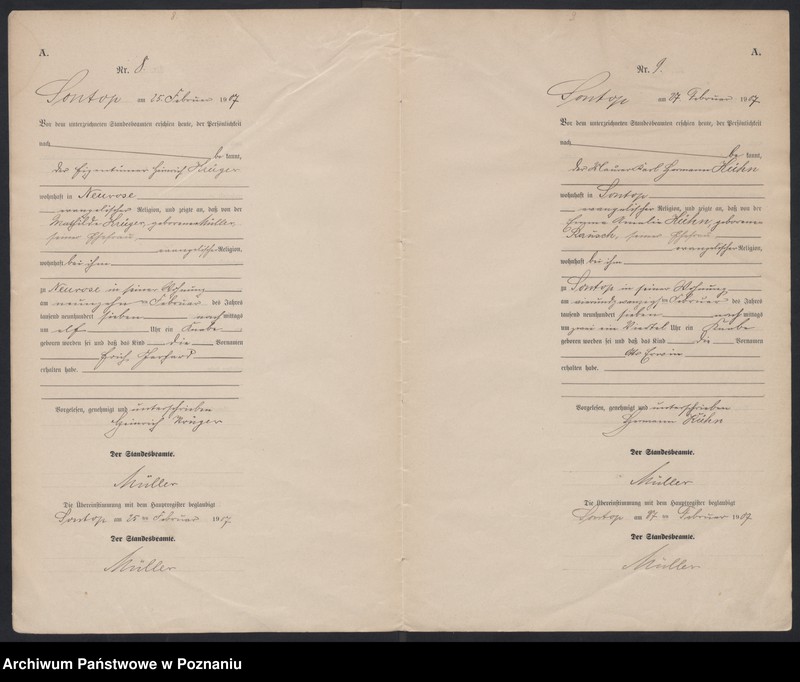 A.
Nr. 8.
Sontop am 25. Februar 1907
Vor dem unterzeichneten Standesbeamten erschien heute, der Persönlichkeit
nach
be kannt,
der Eigentümer Heinrich Krüger
wohnhaft in Neurose
evangelischer Religion, und zeigte an, daß von der
Mathilde Krüger, geborene Müller,
seiner Ehefrau
evangelischer Religion,
wohnhaft bei ihm
zu Neurose in seiner Wohnung
am neunzehnten Februar des Jahres
tausend neunhundert sieben nachmittags
um elf Uhr ein Knabe
geboren worden sei und daß das Kind die Vornamen
Erich Gerhard
erhalten habe.
Vorgelesen, genehmigt und unterschrieben
Heinrich Krüger
Der Standesbeamte.
Müller
Die Übereinstimmung mit dem Hauptregister beglaubigt
Sontop am 25 ten Februar 1907.
Der Standesbeamte.
Müller
A.
Nr. 9.
Sontop am 27 Februar 1907.
Vor dem unterzeichneten Standesbeamten erschien heute, der Persönlichkeit
nach
be kannt,
der Maurer Karl Hermann Kühn
wohnhaft in Sontop
evangelischer Religion, und zeigte an, daß von der
Emma Amalie Kühn, geborenen
Rausch, seiner Ehefrau
evangelischer Religion,
wohnhaft bei ihm
zu Sontop in seiner Wohnung
am vierundzwanzigsten Februar des Jahres
tausend neunhundert sieben nachmittags
um zwei ein Viertel Uhr ein Knabe
geboren worden sei und daß das Kind die Vornamen
Otto Erwin
erhalten habe.
Vorgelesen, genehmigt und unterschrieben
Hermann Kühn
Der Standesbeamte.
Müller
Die Übereinstimmung mit dem Hauptregister beglaubigt
Sontop am 27 ten Februar 1907.
Der Standesbeamte.
Müller
Archiwum Państwowe w Poznaniu